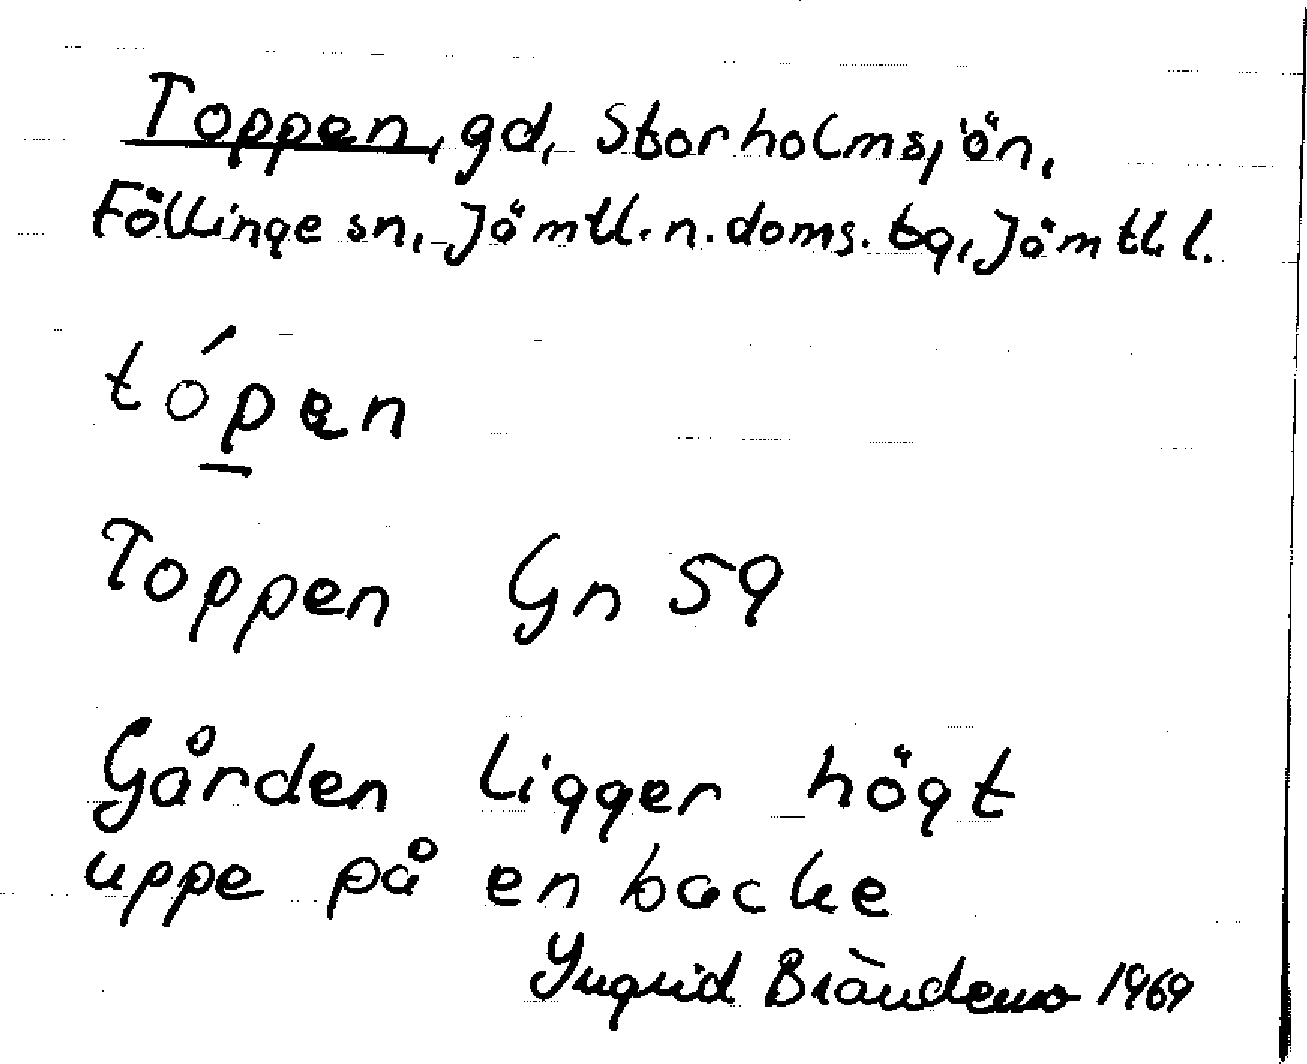 Toppen, gd, Storholmsjön,
Föllinge sn, Jämtl. n. doms. tg, Jämtl. l.
tópen
Toppen Gn 59
Gården ligger högt
uppe på en backe
Yngrid Brändemo 1969